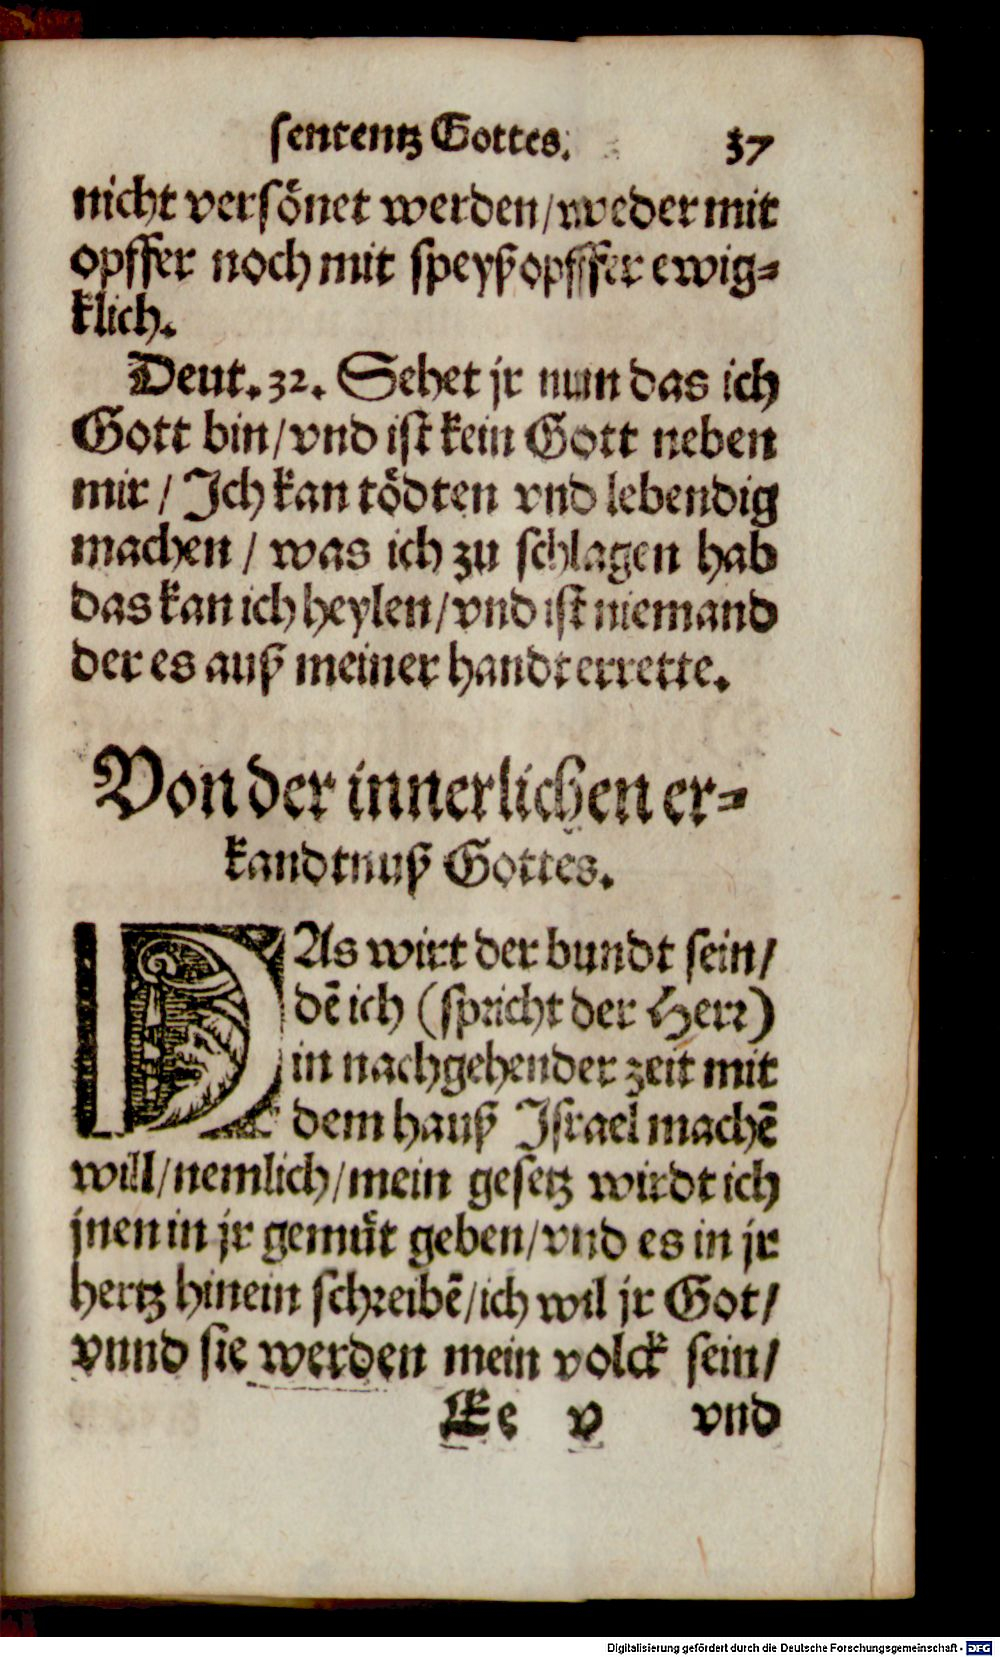 sententz Gottes. 37
nicht versönet werden/weder mit
opffer noch mit speyßopffer ewig=
klich.
Deut. 32. Sehet jr nun das ich
Gott bin/vnd ist kein Gott neben
mir / Ich kan tödten vnd lebendig
machen / was ich zu schlagen hab
das kan ich heylen/vnd ist niemand
der es auß meiner handt errette.
Von der innerlichen er=
kandtnuß Gottes.
DAs wirt der bundt sein/
dē ich (spricht der Herr)
in nachgehender zeit mit
dem hauß Israel machē
will/nemlich/mein gesetz wirdt ich
jnen in jr gemüt geben/vnd es in jr
hertz hinein schreibē/ich wil jr Got/
vnnd sie werden mein volck sein/
Ee v vnd
Digitalisierung gefördert durch die Deutsche Forschungsgemeinschaft - DFG